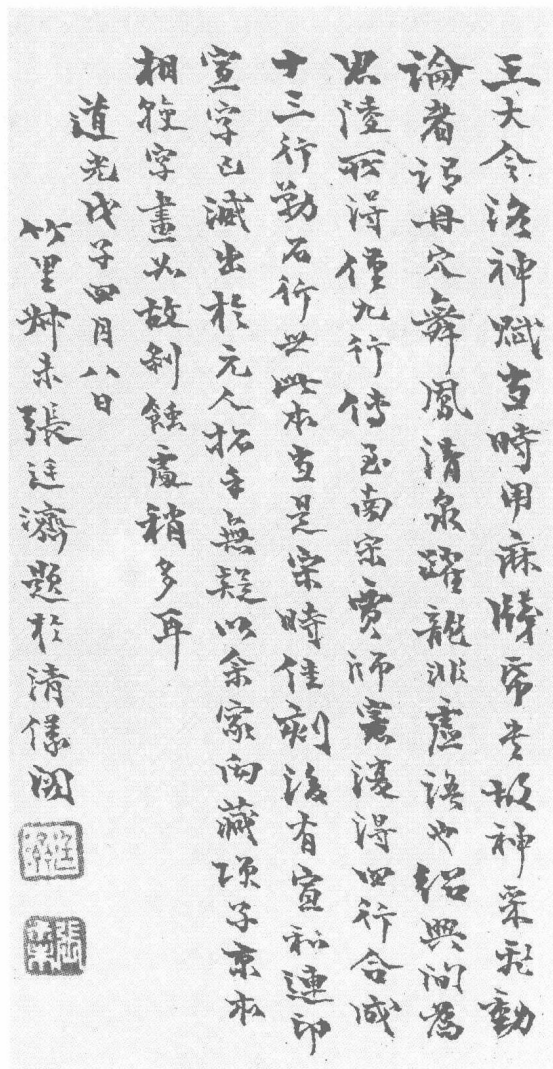 王大令洛神賦當時用麻牋寫者故神采飛動
論者謂丹穴舞鳳清泉躍龍非虛語也紹興間為
思陵所得僅九行傳至南宋賈師憲復得四行合成
十三行勒石行世此本當是宋時佳刻後有宣和連印
宣字已滅出於元人拓手無疑以余家向藏項子京本
相較字畫如故剝蝕處稍多耳
道光戊子四月八日
竹里叔未張廷濟題於清儀閣
廷濟
張叔未